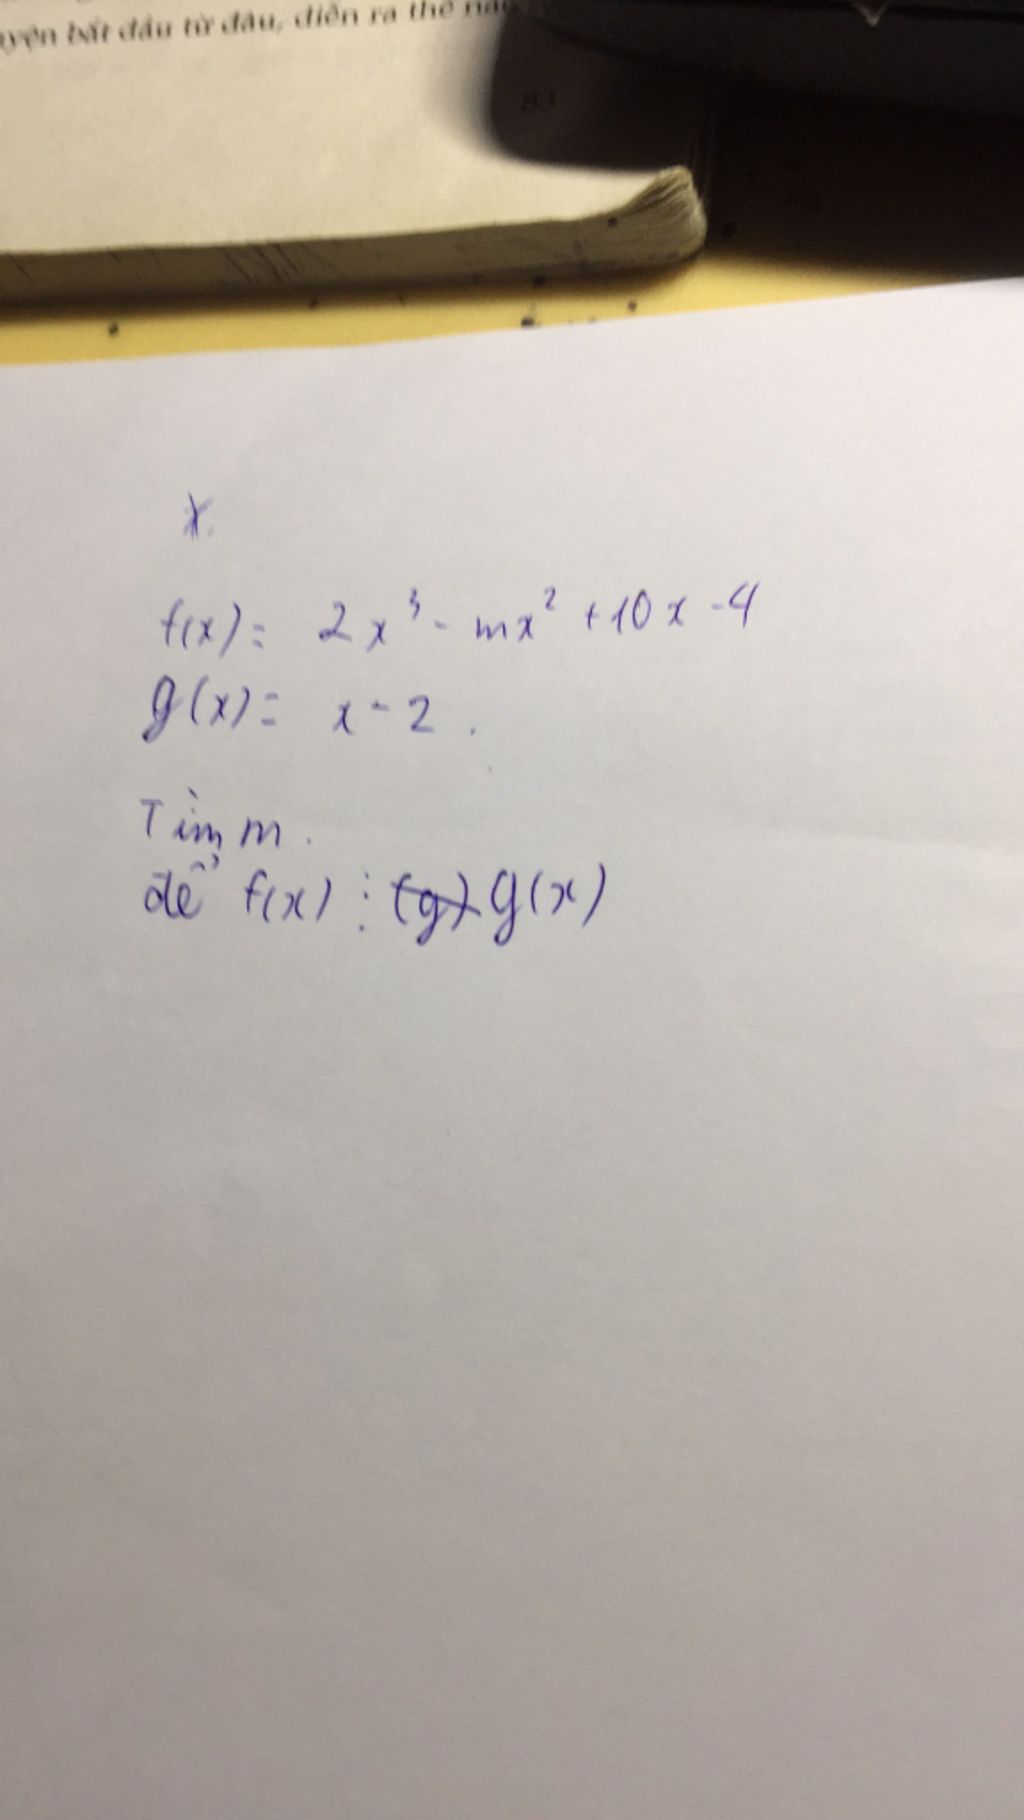 bắt đầu từ đâu, diễn ra thế
83
x
f(x) = 2x³ - mx² + 10x - 4
g(x) = x - 2 .
Tìm m .
để f(x) ⋮ g(x)